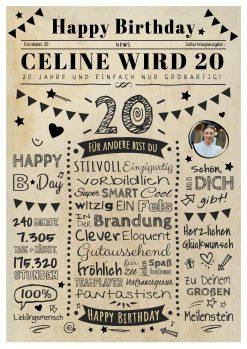 Happy Birthday
Extrablatt 20
NEWS
Geburtstagsausgabe
CELINE WIRD 20
20 JAHRE UND EINFACH NUR GROßARTIG!
20
FÜR ANDERE BIST DU
STILVOLL Einzigartig
vorbildlich
Super SMART Cool
witzig EIN Fels
In der Brandung
Clever Eloquent
Gutaussehend
fröhlich für jeden Spaß zu haben
TEAMPLAYER Vertrauensperson
fantastisch
HAPPY BIRTHDAY
HAPPY
B-DAY
240 MONATE
7.305
175.320
STUNDEN
100%
Lieblingsmensch
Schön,
DASS ES DICH
gibt!
Herzlichen
Glückwunsch
Zu Deinem
GROßEN
Meilenstein